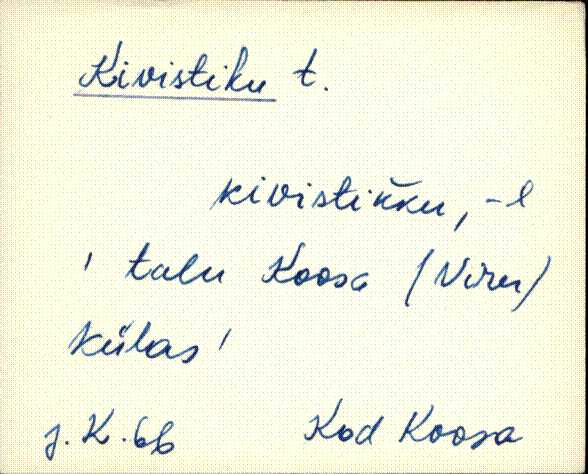 Kivistiku t.
kivistik̆ku, -l
' talu Koosa (Viru)
külas '
J. K. 66 Kod Koosa